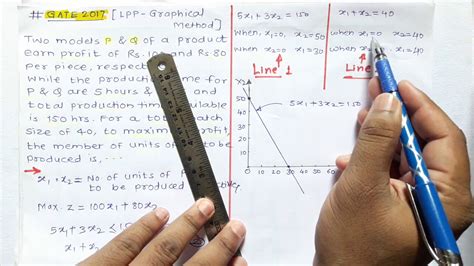 # GATE 2017 [LPP-Graphical
Method]
Two models P & Q of a product
earn profit of Rs. 100 and Rs 80
per piece, respect
While the production time for
P & Q are 5 hours &
total production time available
is 150 hrs. For a total batch
size of 40, to maximize profit,
the member of units of
produced is, ...
x₁, x₂ = No of units of P
to be produced
Max. Z = 100x₁ + 80x₂
5x₁ + 3x₂ ≤ 150
x₁ + x₂
5x₁ + 3x₂ = 150
When, x₁=0, x₂=50
When x₂=0 x₁=30
Line 1
x₁ + x₂ = 40
when x₁=0 x₂=40
when x₁=40
Line
x₂
5x₁ + 3x₂ = 150
60
50
40
30
20
10
0
0 10 20 30 40 50 60